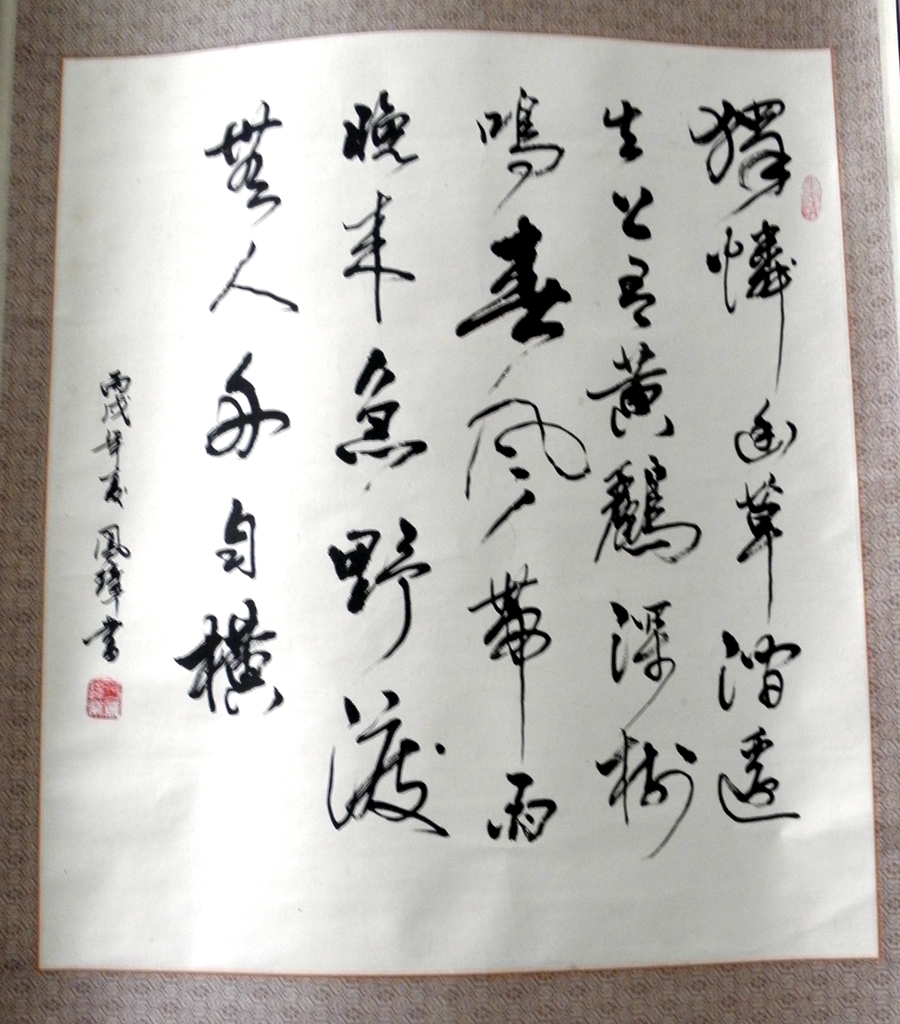 獨憐幽草澗邊
生上有黃鸝深樹
鳴春風帶雨
晚來急野渡
無人舟自橫
丙戌年夏鳳璋書